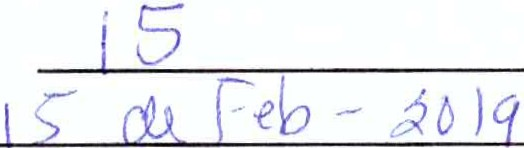 15
15 de Feb - 2019